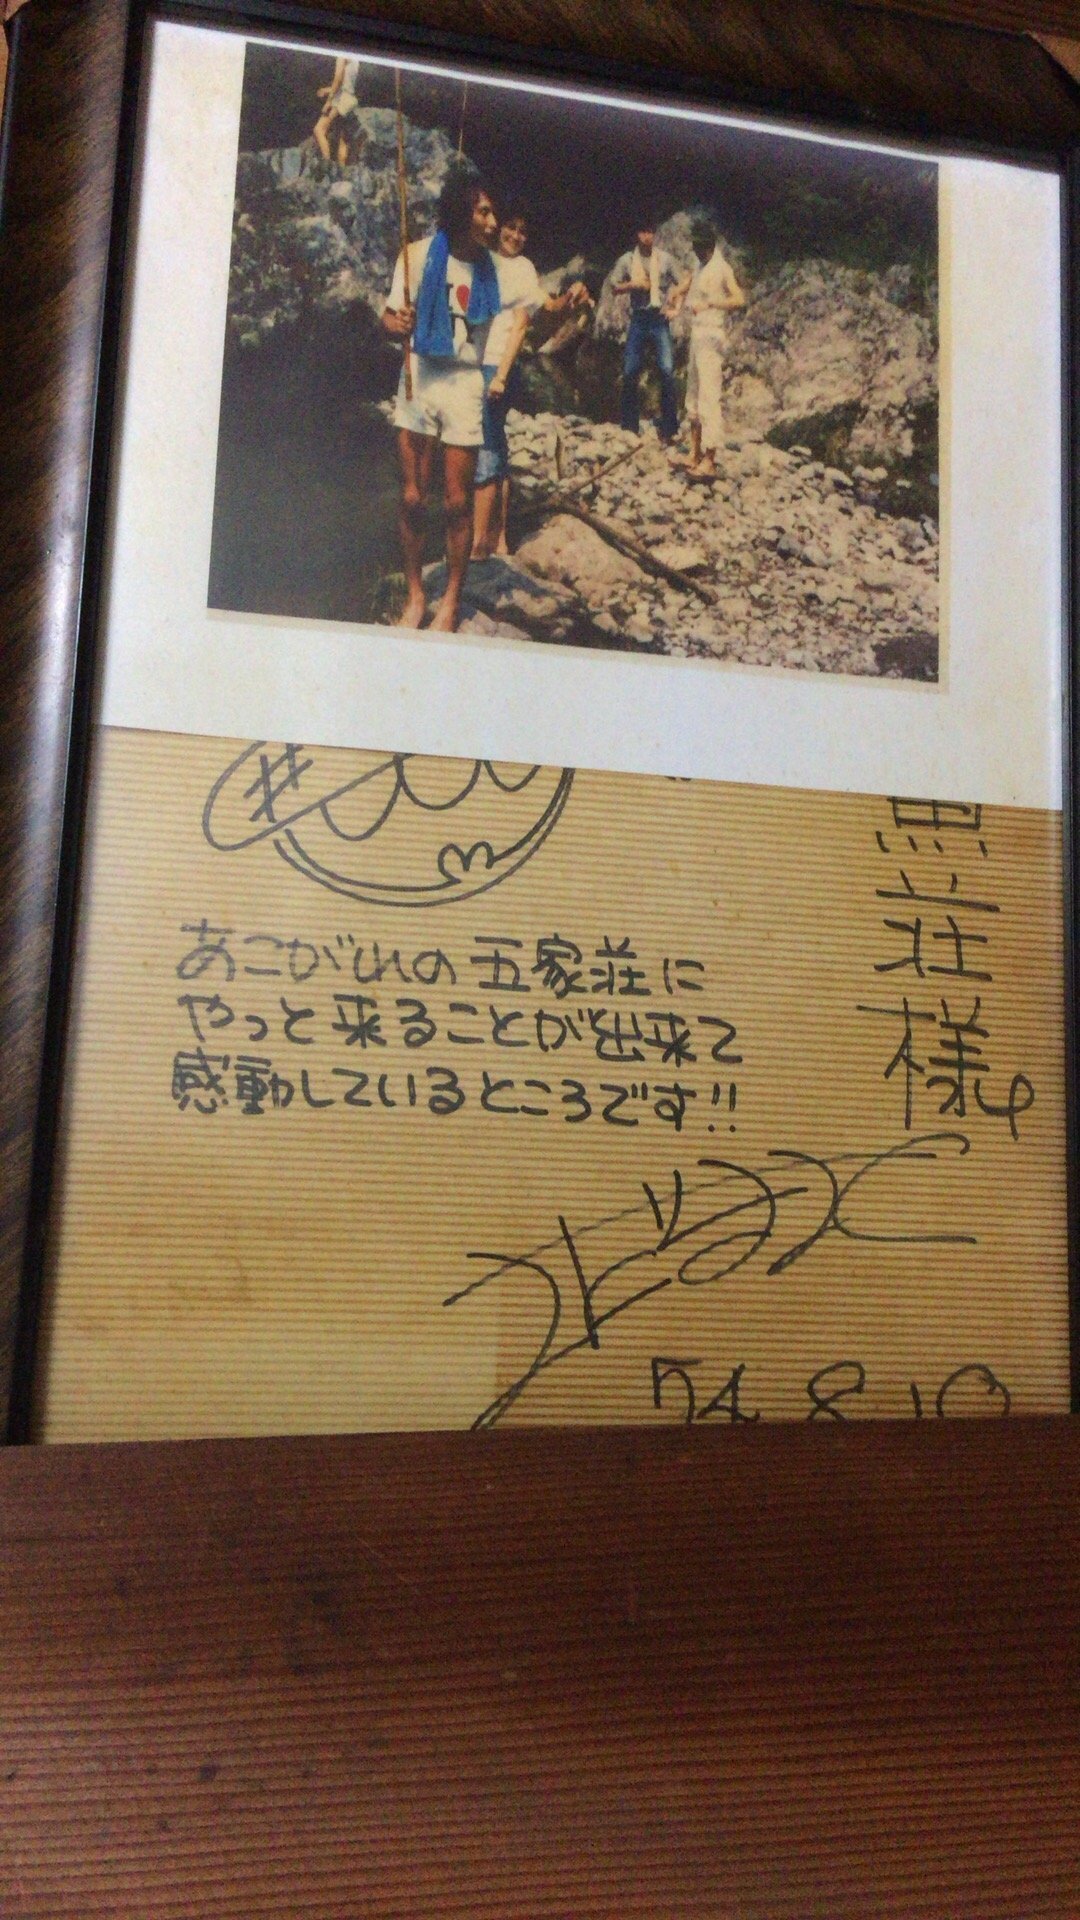 あこがれの五家荘に
やっと来ることが出来て
感動しているところです!!
荘様
54.8.10